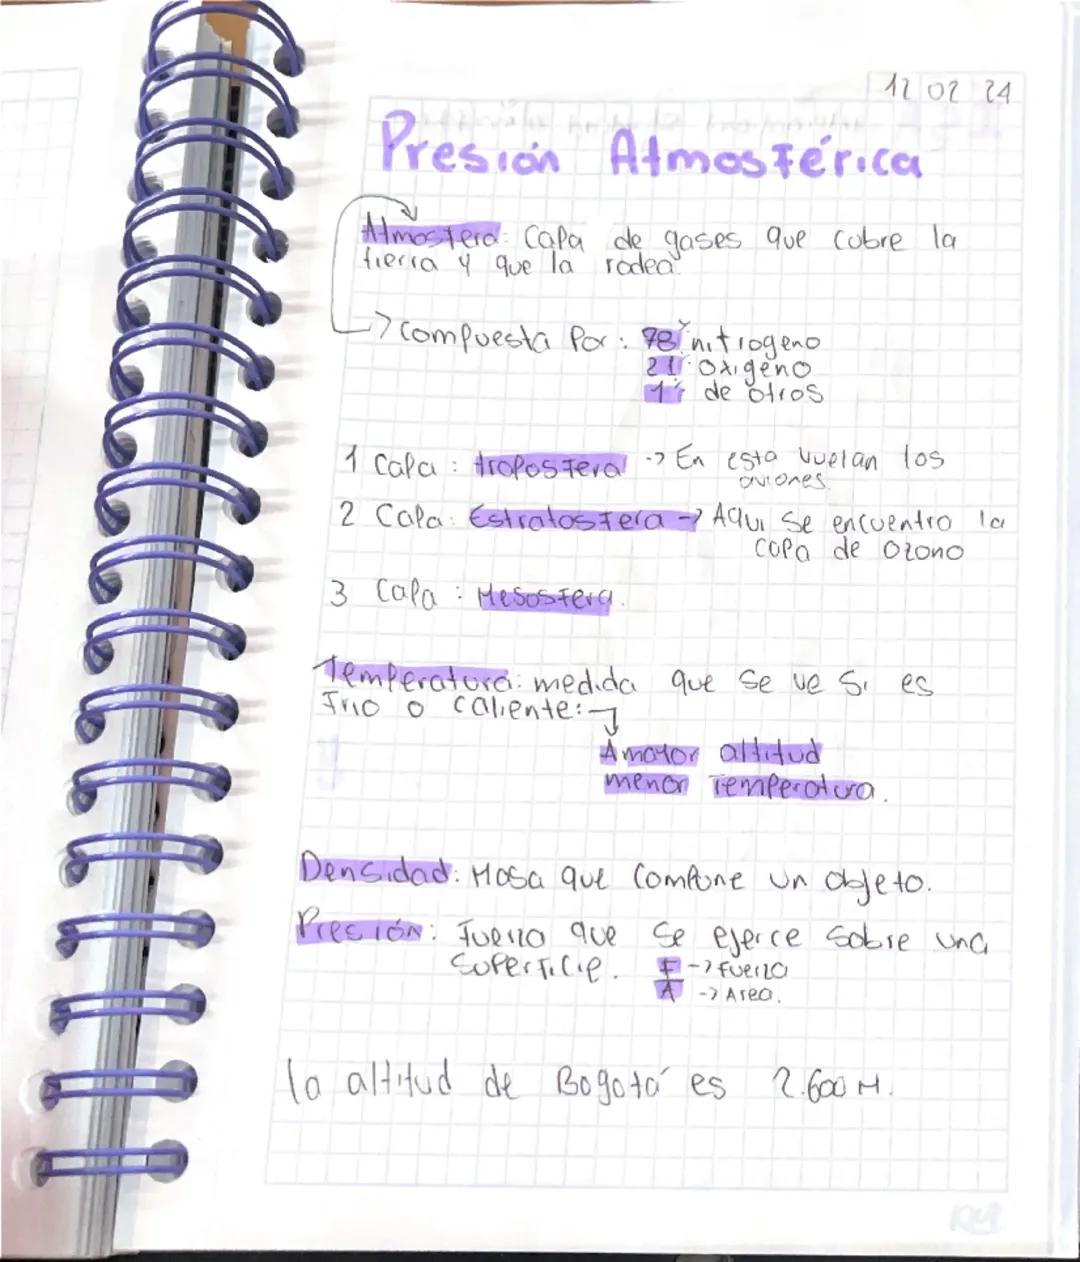 12 02 24
Presión Atmosférica
Atmosfera: Capa de gases que cubre la
tierra y que la rodea.
→ Compuesta Por: 78% nitrogeno
21% Oxigeno
1% de otros
1 Capa: troposfera -> En esta vuelan los
aviones.
2 Capa: Estratosfera -> Aqui se encuentra la
capa de Ozono
3 Capa: Mesosfera.
Temperatura: medida que se ve si es
frio o caliente:
A mayor altitud
menor Temperatura.
Densidad: Masa que compone un objeto.
Presión: Fuerza que se ejerce sobre una
superficie. F -> Fuerza
A -> Area.
la altitud de Bogotá es 2.600 M.